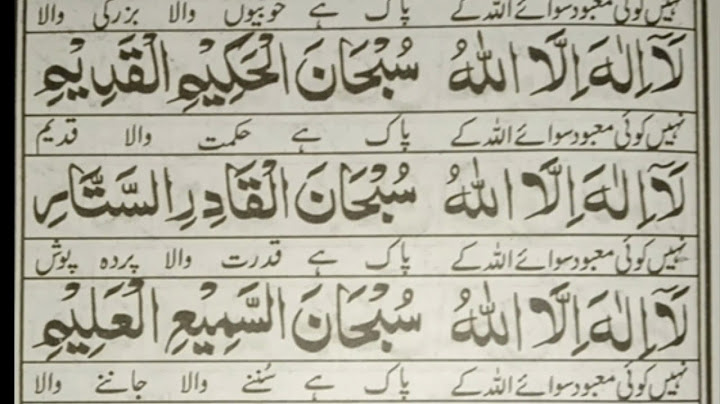 نہیں کوئی معبود سوائے اللہ کے پاک ہے خوبیوں والا بزرگی والا
لَآ اِلٰهَ اِلَّا اللّٰهُ سُبْحَانَ الْحَكِيْمِ الْقَدِيْمِ
نہیں کوئی معبود سوائے اللہ کے پاک ہے حکمت والا قدیم
لَآ اِلٰهَ اِلَّا اللّٰهُ سُبْحَانَ الْقَادِرِ السَّتَّارِ
نہیں کوئی معبود سوائے اللہ کے پاک ہے قدرت والا پردہ پوش
لَآ اِلٰهَ اِلَّا اللّٰهُ سُبْحَانَ السَّمِيْعِ الْعَلِيْمِ
نہیں کوئی معبود سوائے اللہ کے پاک ہے سُننے والا جاننے والا